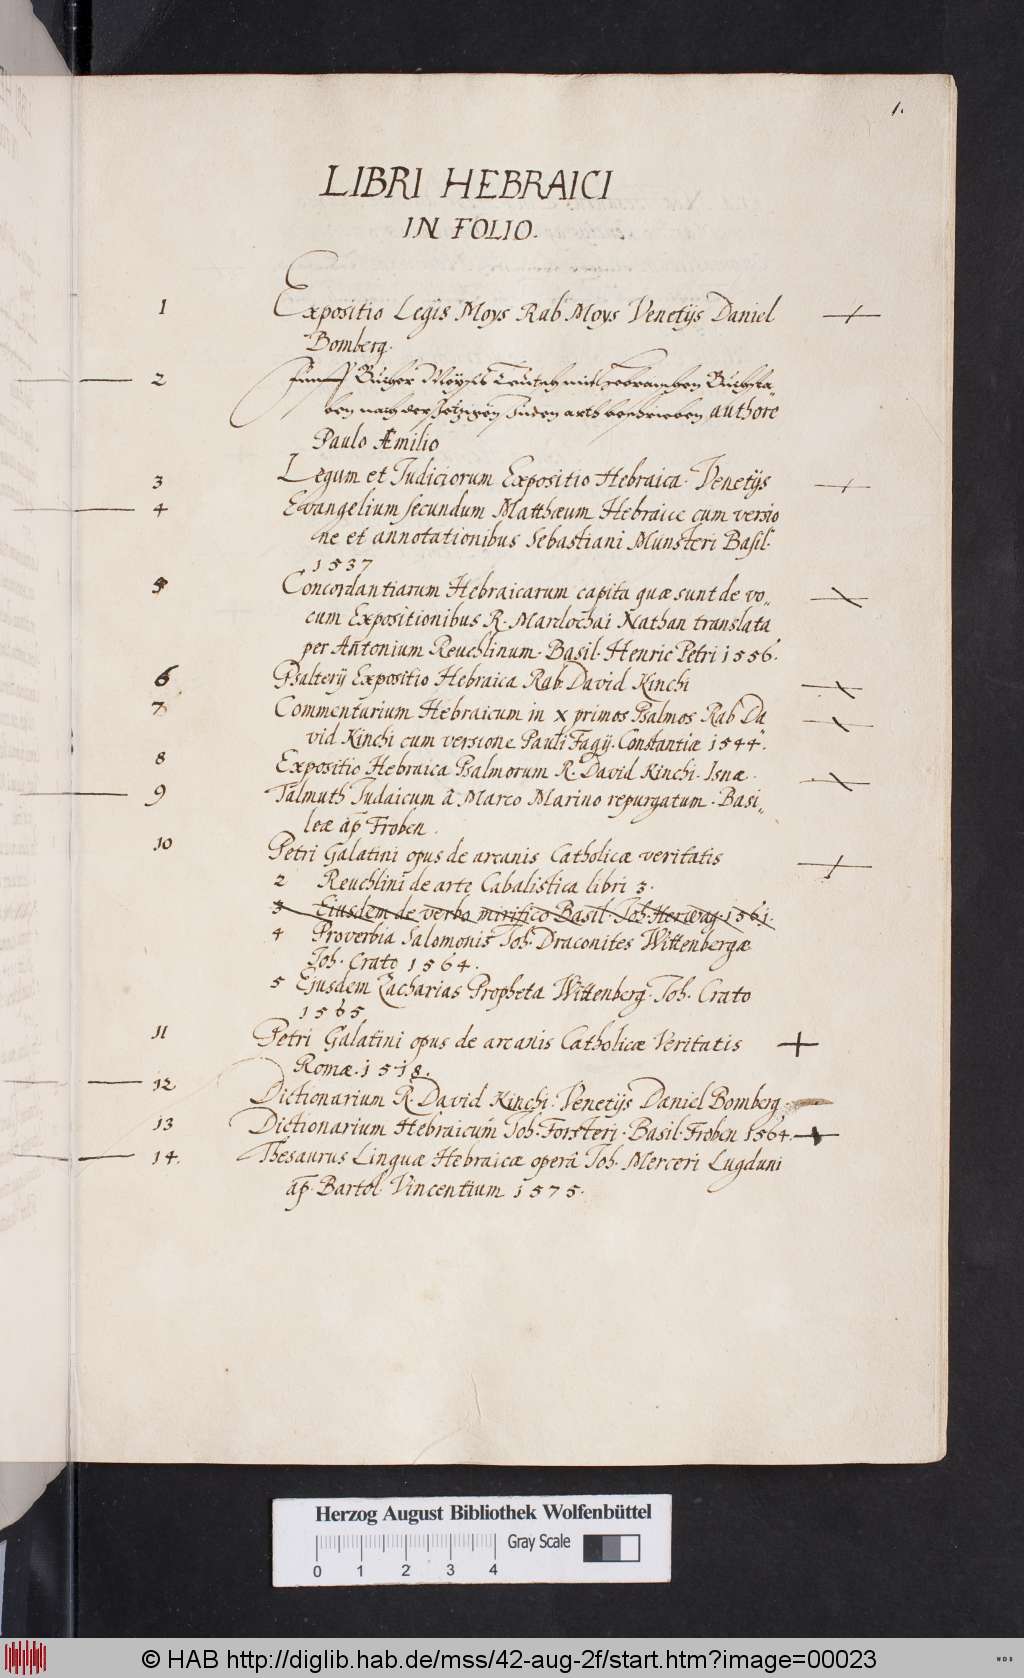 1.
LIBRI HEBRAICI
IN FOLIO.
1 Expositio Legis Moys Rab Moys Venetijs Daniel
Bomberg.
2 Fünff Bücher Moysis Teutsch mit Hebraischen Buchsta„
ben nach der Jetzigen Juden arth beschrieben authore
Paulo Æmilio
3 Legum et Judiciorum Expositio Hebraica. Venetijs
4 Evangelium secundum Matthæum Hebraice cum versio
ne et annotationibus Sebastiani Munsteri Basil.
1537
5 Concordantiarum Hebraicarum capita quæ sunt de vo„
cum Expositionibus R. Mardochai Nathan translata
per Antonium Reuchlinum. Basil. Henric Petri 1556.
6 Psalterij Expositio Hebraica Rab. David Kinchi
7 Commentarium Hebraicum in x primos Psalmos Rab Da„
vid Kinchi cum versione Pauli Fagij. Constantiæ 1544.
8 Expositio Hebraica Psalmorum R. David Kinchi. Isnæ.
9 Talmuth Judaicum â Marco Marino repurgatum. Basi„
leæ ap Froben.
10 Petri Galatini opus de arcanis Catholicæ veritatis
2 Reuchlini de arte Cabalistica libri 3.
3 Eiusdem de verbo mirifico Basil. Joh. Herwag. 1561.
4 Proverbia Salomonis Joh. Draconites Wittenbergæ
Joh. Crato 1564.
5 Ejusdem Zacharias Propheta Wittenberg. Joh. Crato
1565
11 Petri Galatini opus de arcanis Catholicæ Veritatis
Romæ. 1518.
12 Dictionarium R. David Kinchi. Venetijs Daniel Bomberg.
13 Dictionarium Hebraicum Joh. Forsteri. Basil. Froben 1564.
14. Thesaurus Linguæ Hebraicæ operâ Joh. Merceri Lugduni
ap. Bartol. Vincentium 1575.
Herzog August Bibliothek Wolfenbüttel
Gray Scale
0 1 2 3 4
© HAB http://diglib.hab.de/mss/42-aug-2f/start.htm?image=00023